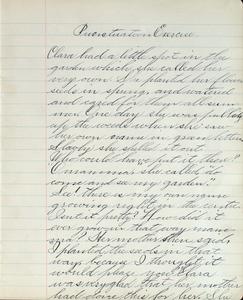 Punctuation Exercise.
Clara had a little spot in the
garden which she called her
very own. She planted her flower
seeds in spring, and watered
and cared for them all sum
mer. One day she was pulling
up the weeds when she saw
her own name in green letters
Slowly she spelled it out
Who could have put it there?
O mamma she called do
come and see my garden.
See! there is my own name
growing right in the
Isn't it pretty? How did it
ever grow in that way mam
ma? Her mother then said,
I planted the seeds in that
way because I thought it
would please you. Clara
was very glad that her mother
had done this for her. She